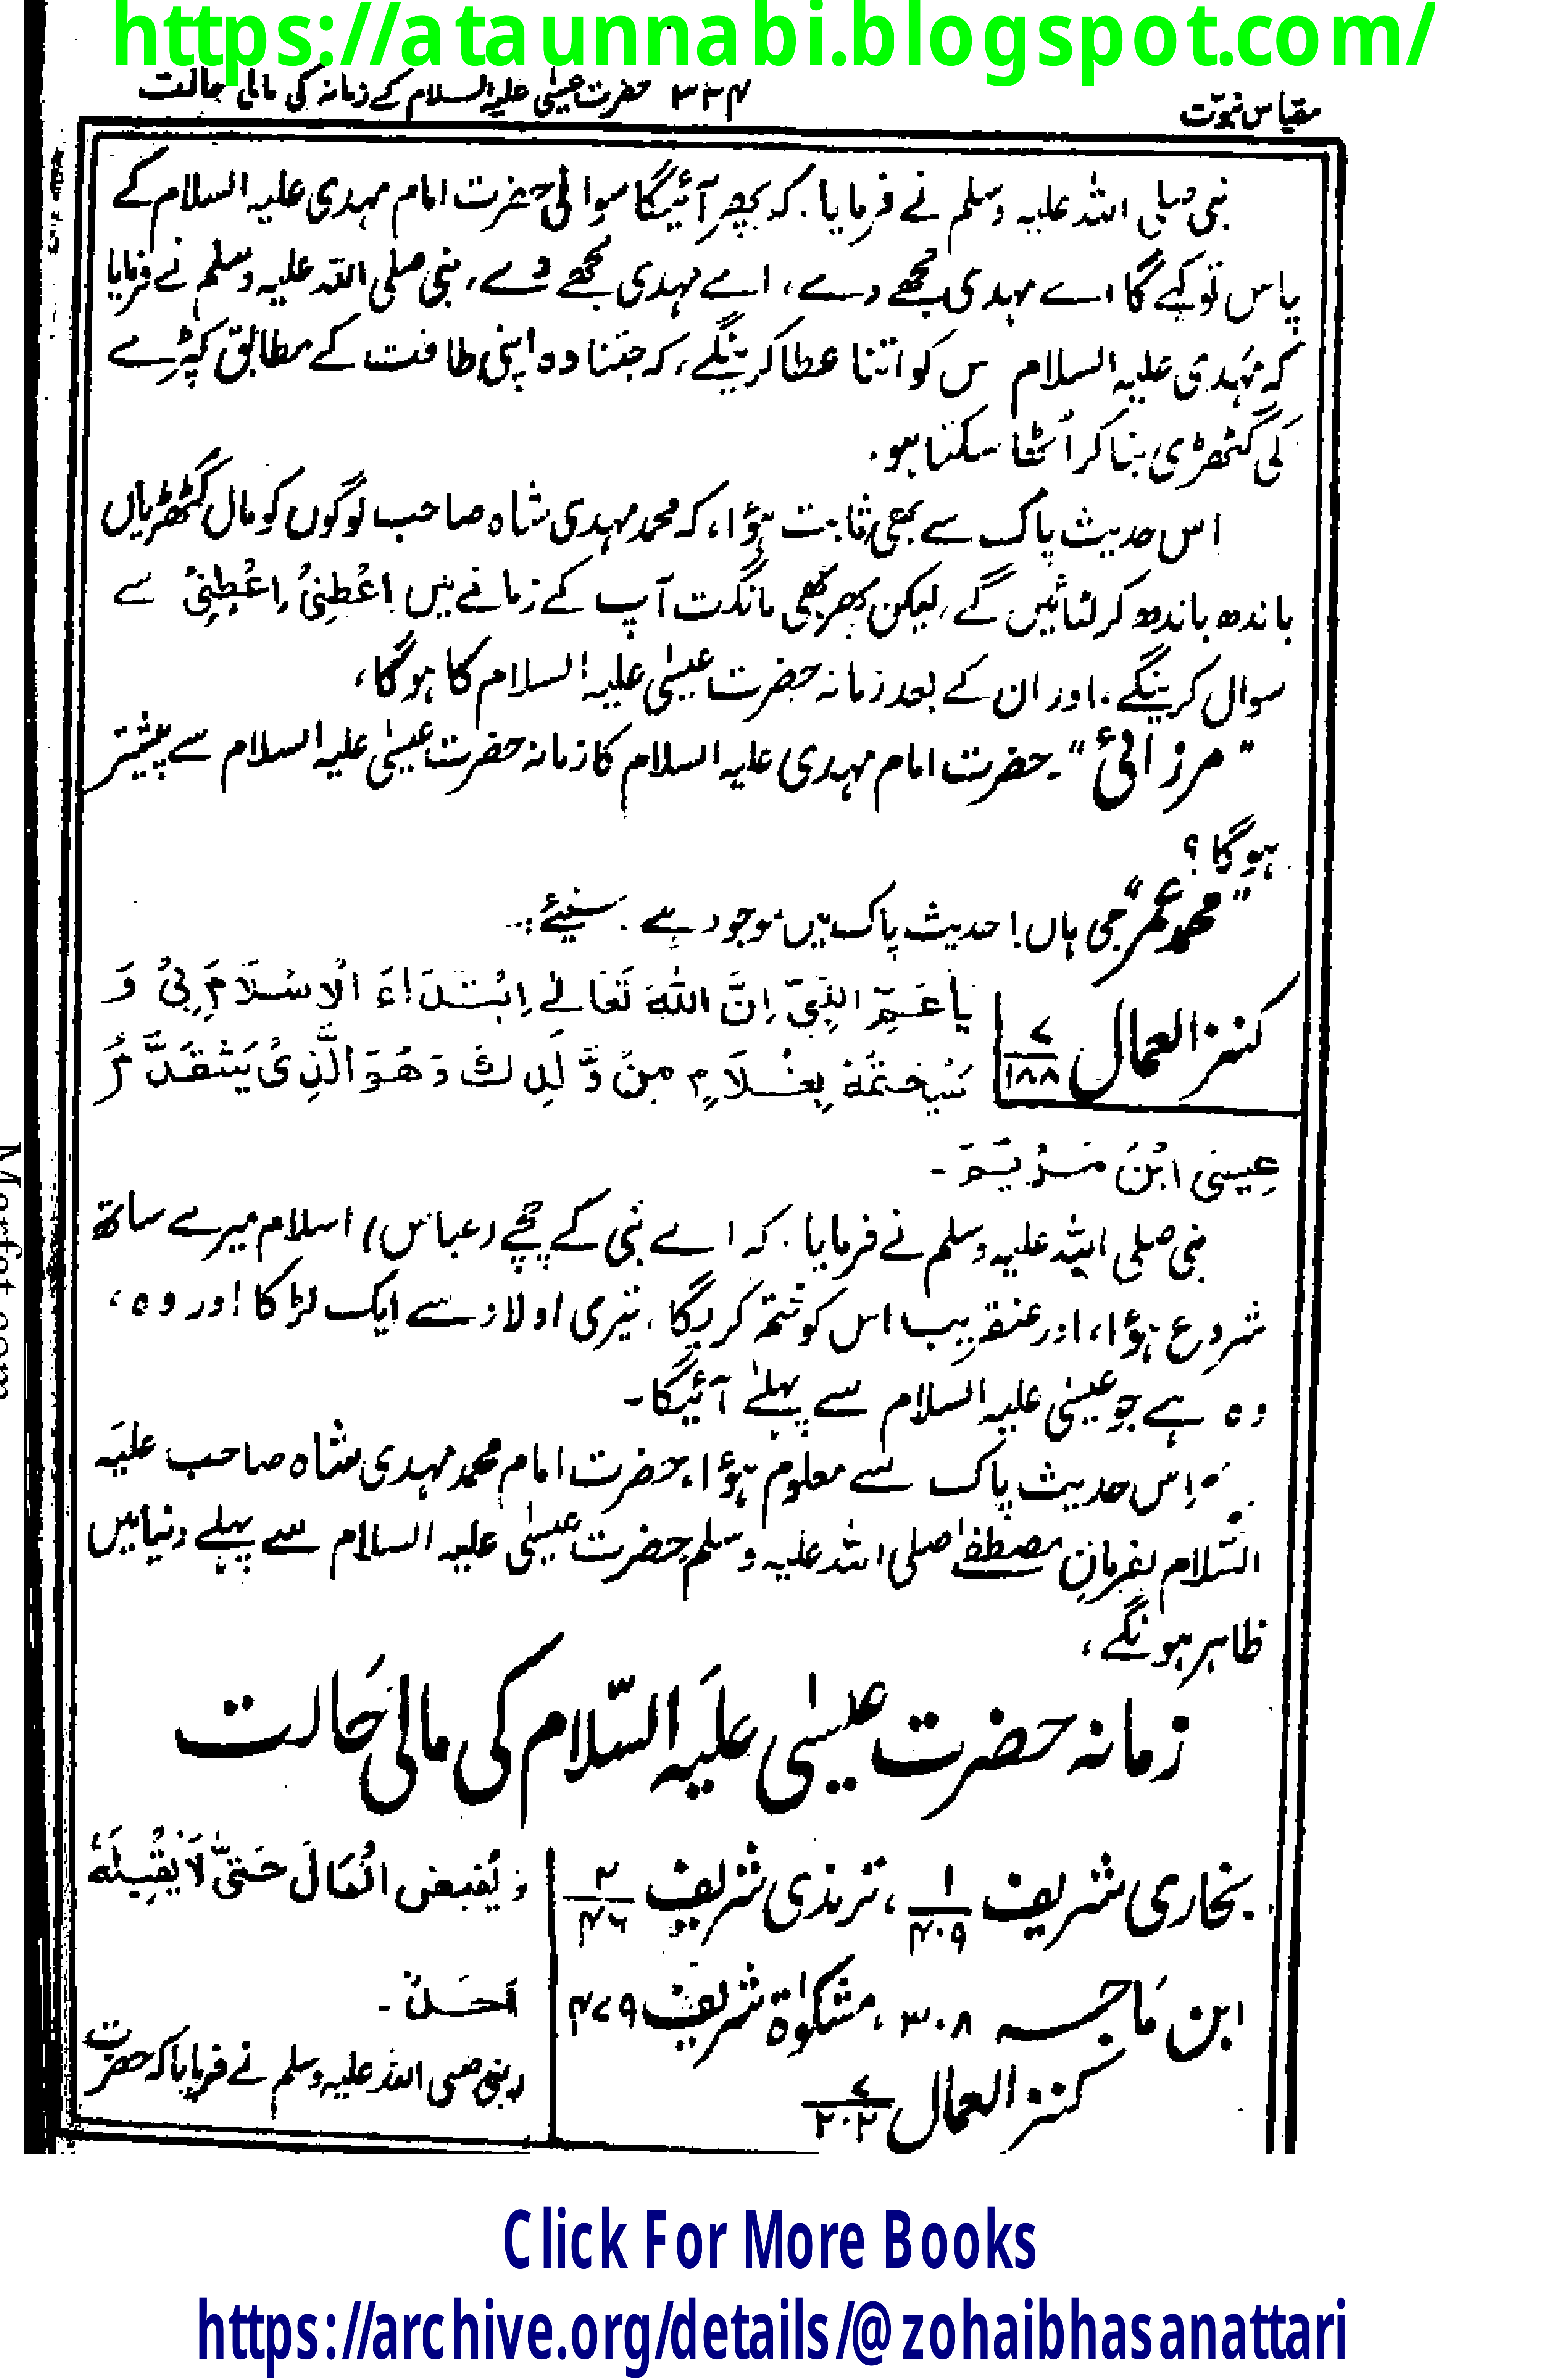 https://ataunnabi.blogspot.com/
مقیاس نبوّت ۳۳۴ حضرت عیسٰی علیہ السلام کے زمانہ کی مالی حالت
نبی صلی اللہ علیہ وسلم نے فرمایا۔ کہ پھر آئیگا سوالی حضرت امام مہدی علیہ السلام کے
پاس تو کہے گا اے مہدی مجھے دے، اے مہدی مجھے دے، نبی صلی اللہ علیہ وسلم نے فرمایا
کہ مہدی علیہ السلام س کو اتنا عطا کرینگے، کہ جتنا وہ اپنی طاقت کے مطابق کپڑے
کی گٹھڑی بنا کر اُٹھا سکتا ہو۔
اس حدیث پاک سے بھی ثابت ہؤا، کہ محمد مہدی شاہ صاحب لوگوں کو مال گٹھڑیاں
باندھ باندھ کر لٹائیں گے، لیکن پھر بھی مانگت آپ کے زمانے میں اعْطِنِیْ اعْطِنِیْ سے
سوال کرینگے۔ اور ان کے بعد زمانہ حضرت عیسٰی علیہ السلام کا ہو گا،
"مرزائی"۔ حضرت امام مہدی علیہ السلام کا زمانہ حضرت عیسٰی علیہ السلام سے پیشتر
ہو گا؟
"محمد عمر" جی ہاں! حدیث پاک میں موجود ہے۔ سنیئے:۔
کنز العمال ۷/۱۸۸ یَا عَمِّ النَّبِیِّ اِنَّ اللّٰہَ تَعَالٰے اِبْتَدَاءَ الْاِسْلَامِ بِیْ وَ
سَیَخْتَمُہٗ بِغُلَامٍ مِنْ وَّلَدِكَ وَھُوَ الَّذِیْ یَتَقَدَّمُ
عِیسٰی ابْنَ مَرْیَمَ۔
نبی صلی اللہ علیہ وسلم نے فرمایا۔ کہ اے نبی کے چچے (عباس) اسلام میرے ساتھ
شروع ہؤا، اور عنقریب اس کو ختم کریگا، تیری اولاد سے ایک لڑکا اور وہ،
وہ ہے جو عیسٰی علیہ السلام سے پہلے آئیگا۔
اِس حدیث پاک سے معلوم ہؤا، حضرت امام محمد مہدی شاہ صاحب علیہ
السّلام بفرمانِ مصطفٰے صلی اللہ علیہ وسلم حضرت عیسٰی علیہ السلام سے پہلے دنیا میں
ظاہر ہونگے،
زمانہ حضرت عیسٰی علیہ السّلام کی مالی حالت
بخاری شریف ۱/۴۰۹، ترمذی شریف ۲/۴۶
ابن ماجہ ۳۰۸، مشکوٰۃ شریف ۴۷۹
کنز العمال ۷/۲۰۲
وَیُفِیضُ الْمَالَ حَتّٰی لَا یَقْبِلَہٗ
اَحَدٌ۔
(نبی صلی اللہ علیہ وسلم نے فرمایا کہ حضرت
Marfat.com
Click For More Books
https://archive.org/details/@zohaibhasanattari